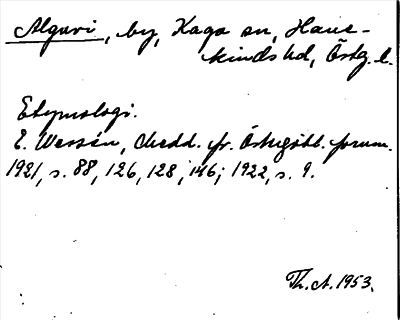 Alguvi, by, Kaga sn, Hans-
kinds hd, Östg. l.
Etymologi.
E. Wessén, Medd. fr. Östergötl. fornm.
1921, s. 88, 126, 128, 146; 1922, s. 9.
Th. A. 1953.